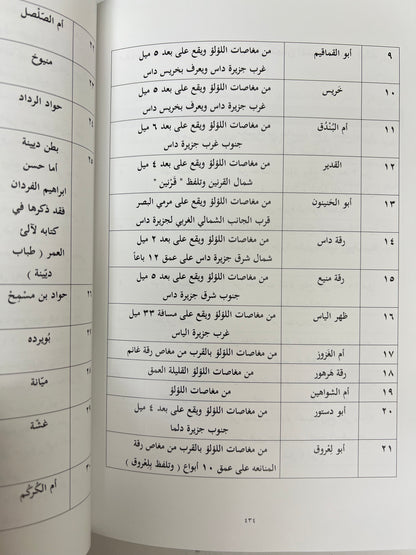 ٩ أبو القماقيم من مغاصات اللؤلؤ ويقع على بعد ٥ ميل
غرب جزيرة داس ويعرف بخريس داس
١٠ خريس من مغاصات اللؤلؤ ويقع على بعد ٥ ميل
غرب جزيرة داس ويعرف بخريس داس
١١ أم البُنْدُق من مغاصات اللؤلؤ ويقع على بعد ٦ ميل
جنوب غرب جزيرة داس
١٢ القدير من مغاصات اللؤلؤ ويقع على بعد ٤ ميل
شمال القرنين وتلفظ " قَرْنين "
١٣ أبو الحنينون من مغاصات اللؤلؤ ويقع على مرمي البصر
قرب الجانب الشمالي الغربي لجزيرة داس
١٤ رقة داس من مغاصات اللؤلؤ ويقع على بعد ٢ ميل
شمال شرق جزيرة داس على عمق ١٢ باعاً
١٥ رقة منيع من مغاصات اللؤلؤ ويقع على بعد ٥ ميل
جنوب شرق جزيرة داس
١٦ ظهر الياس من مغاصات اللؤلؤ ويقع على مسافة ٣٣ ميل
غرب جزيرة الياس
١٧ أم الغزوز من مغاصات اللؤلؤ بالقرب من مغاص رقة غانم
١٨ رقة هَرهور من مغاصات اللؤلؤ القليلة العمق
١٩ أم الشواهين من مغاصات اللؤلؤ
٢٠ أبو دستور من مغاصات اللؤلؤ ويقع على بعد ٤ ميل
جنوب جزيرة دلما
٢١ أبو لِعْروق من مغاصات اللؤلؤ بالقرب من مغاص رقة
المنانعه على عمق ١٠ أبواع ( وتلفظ بِلِعْروق )
٤٣٤
أم الصَّلْصل
منيوخ
حواد الرداد
٢٤
بطن دبينة
أما حسن
ابراهيم الفردان
فقد ذكرها في
كتابه لآلئ
العمر ( طباب
دبّينة )
٢٥
حواد بن مسْمِحْ
٢٦
بُويرده
ميّانة
غَشّة
أم الكُركُم